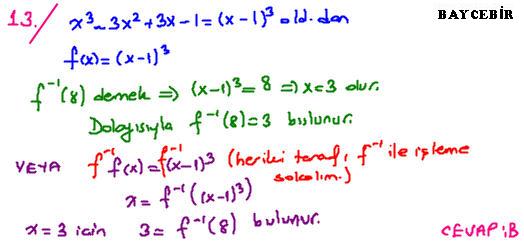 BAYCEBİR
13./ x³-3x²+3x-1=(x-1)³ old.dan
f(x)=(x-1)³
f⁻¹(8) demek ⇒ (x-1)³=8 ⇒ x=3 olur.
Dolayısıyla f⁻¹(8)=3 bulunur.
VEYA f⁻¹f(x)=f⁻¹(x-1)³ (her iki taraf, f⁻¹ ile işleme
sokalım.)
x=f⁻¹((x-1)³)
x=3 icin 3=f⁻¹(8) bulunur.
CEVAP:B